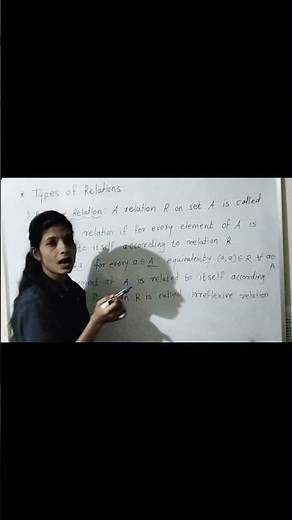 * Types of Relations
Relation: A relation R on set A is called
relation if for every element of A is
to itself according to relation R
for every a ∈ A equivalently (a, a) ∈ R ∀ a ∈ A
of A is related to itself according
R is called irreflexive relation